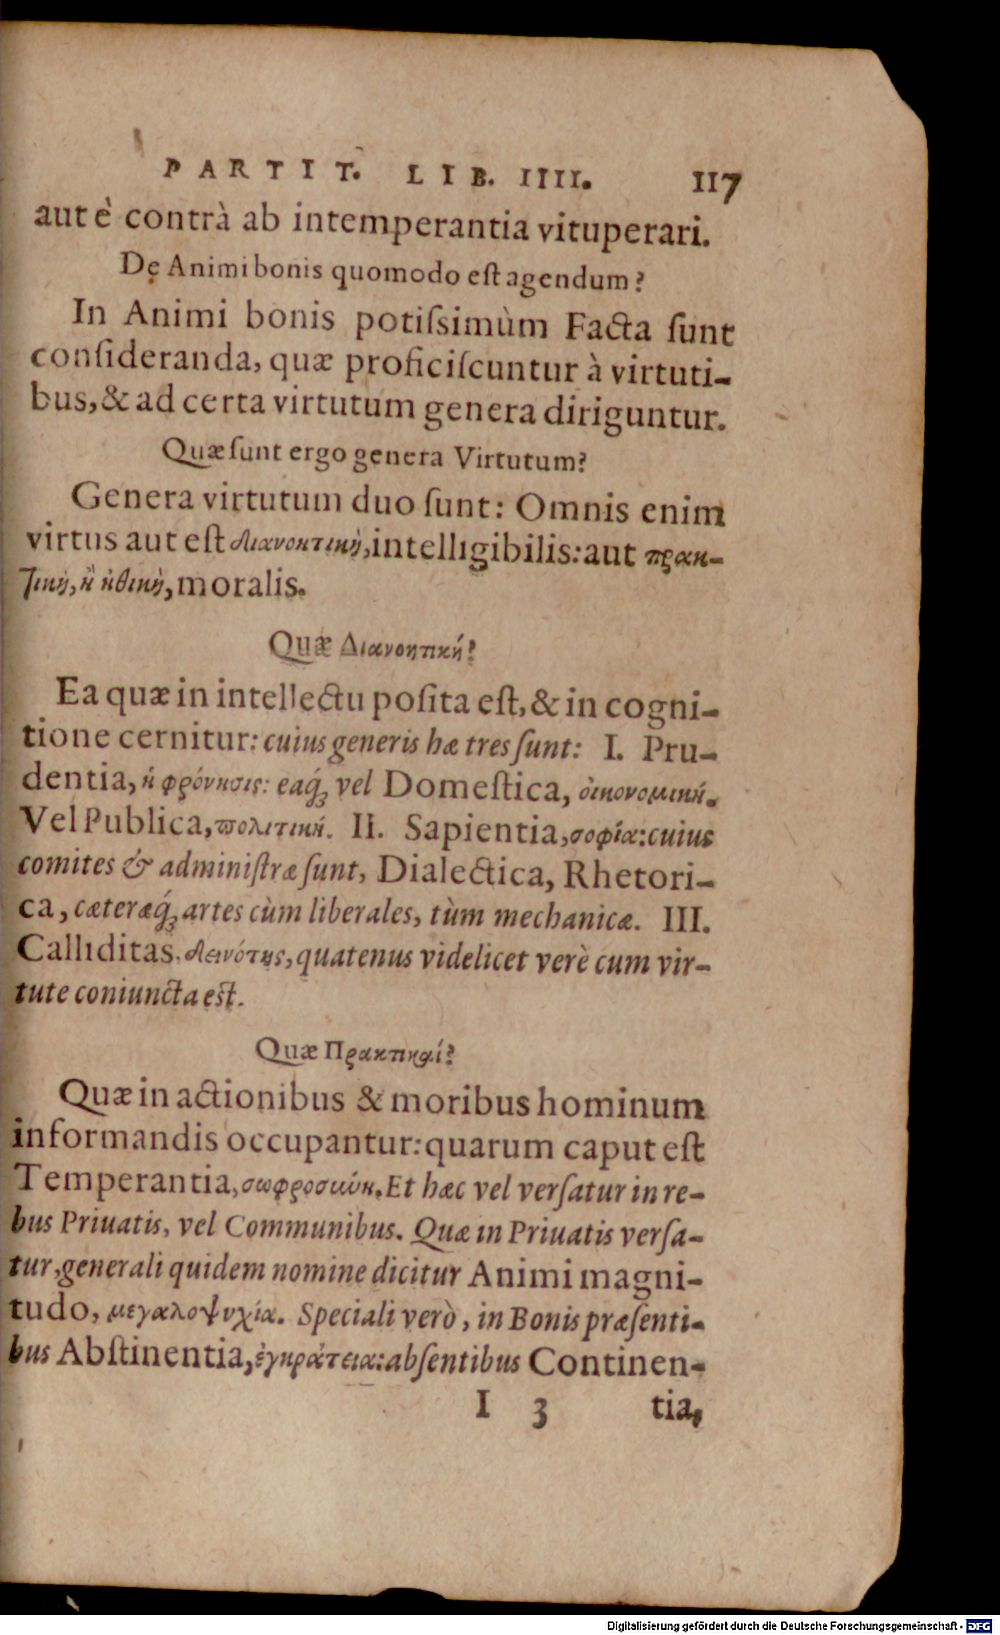 PARTIT. LIB. IIII. 117
aut è contrà ab intemperantia vituperari.
De Animi bonis quomodo est agendum?
In Animi bonis potiſsimùm Facta ſunt
conſideranda, quæ proficiſcuntur à virtuti-
bus, & ad certa virtutum genera diriguntur.
Quæ ſunt ergo genera Virtutum?
Genera virtutum duo ſunt: Omnis enim
virtus aut eſt διανοητικὴ, intelligibilis: aut πρακ-
τικὴ, ἢ ἠθικὴ, moralis.
Quæ Διανοητική?
Ea quæ in intellectu poſita eſt, & in cogni-
tione cernitur: cuius generis hæ tres ſunt: I. Pru-
dentia, ἡ φρόνησις: eaq́; vel Domeſtica, ὀικονομική.
Vel Publica, πολιτική. II. Sapientia, σοφία: cuius
comites & adminiſtræ ſunt, Dialectica, Rhetori-
ca, cæteræq́; artes cùm liberales, tùm mechanicæ. III.
Calliditas, δεινότης, quatenus videlicet verè cum vir-
tute coniuncta eſt.
Quæ Πρακτικαί?
Quæ in actionibus & moribus hominum
informandis occupantur: quarum caput eſt
Temperantia, σωφροσύνη. Et hæc vel verſatur in re-
bus Priuatis, vel Communibus. Quæ in Priuatis verſa-
tur, generali quidem nomine dicitur Animi magni-
tudo, μεγαλοψυχία. Speciali verò, in Bonis præſenti-
bus Abſtinentia, ἐγκράτεια: abſentibus Continen-
I 3 tia,
Digitalisierung gefördert durch die Deutsche Forschungsgemeinschaft - DFG